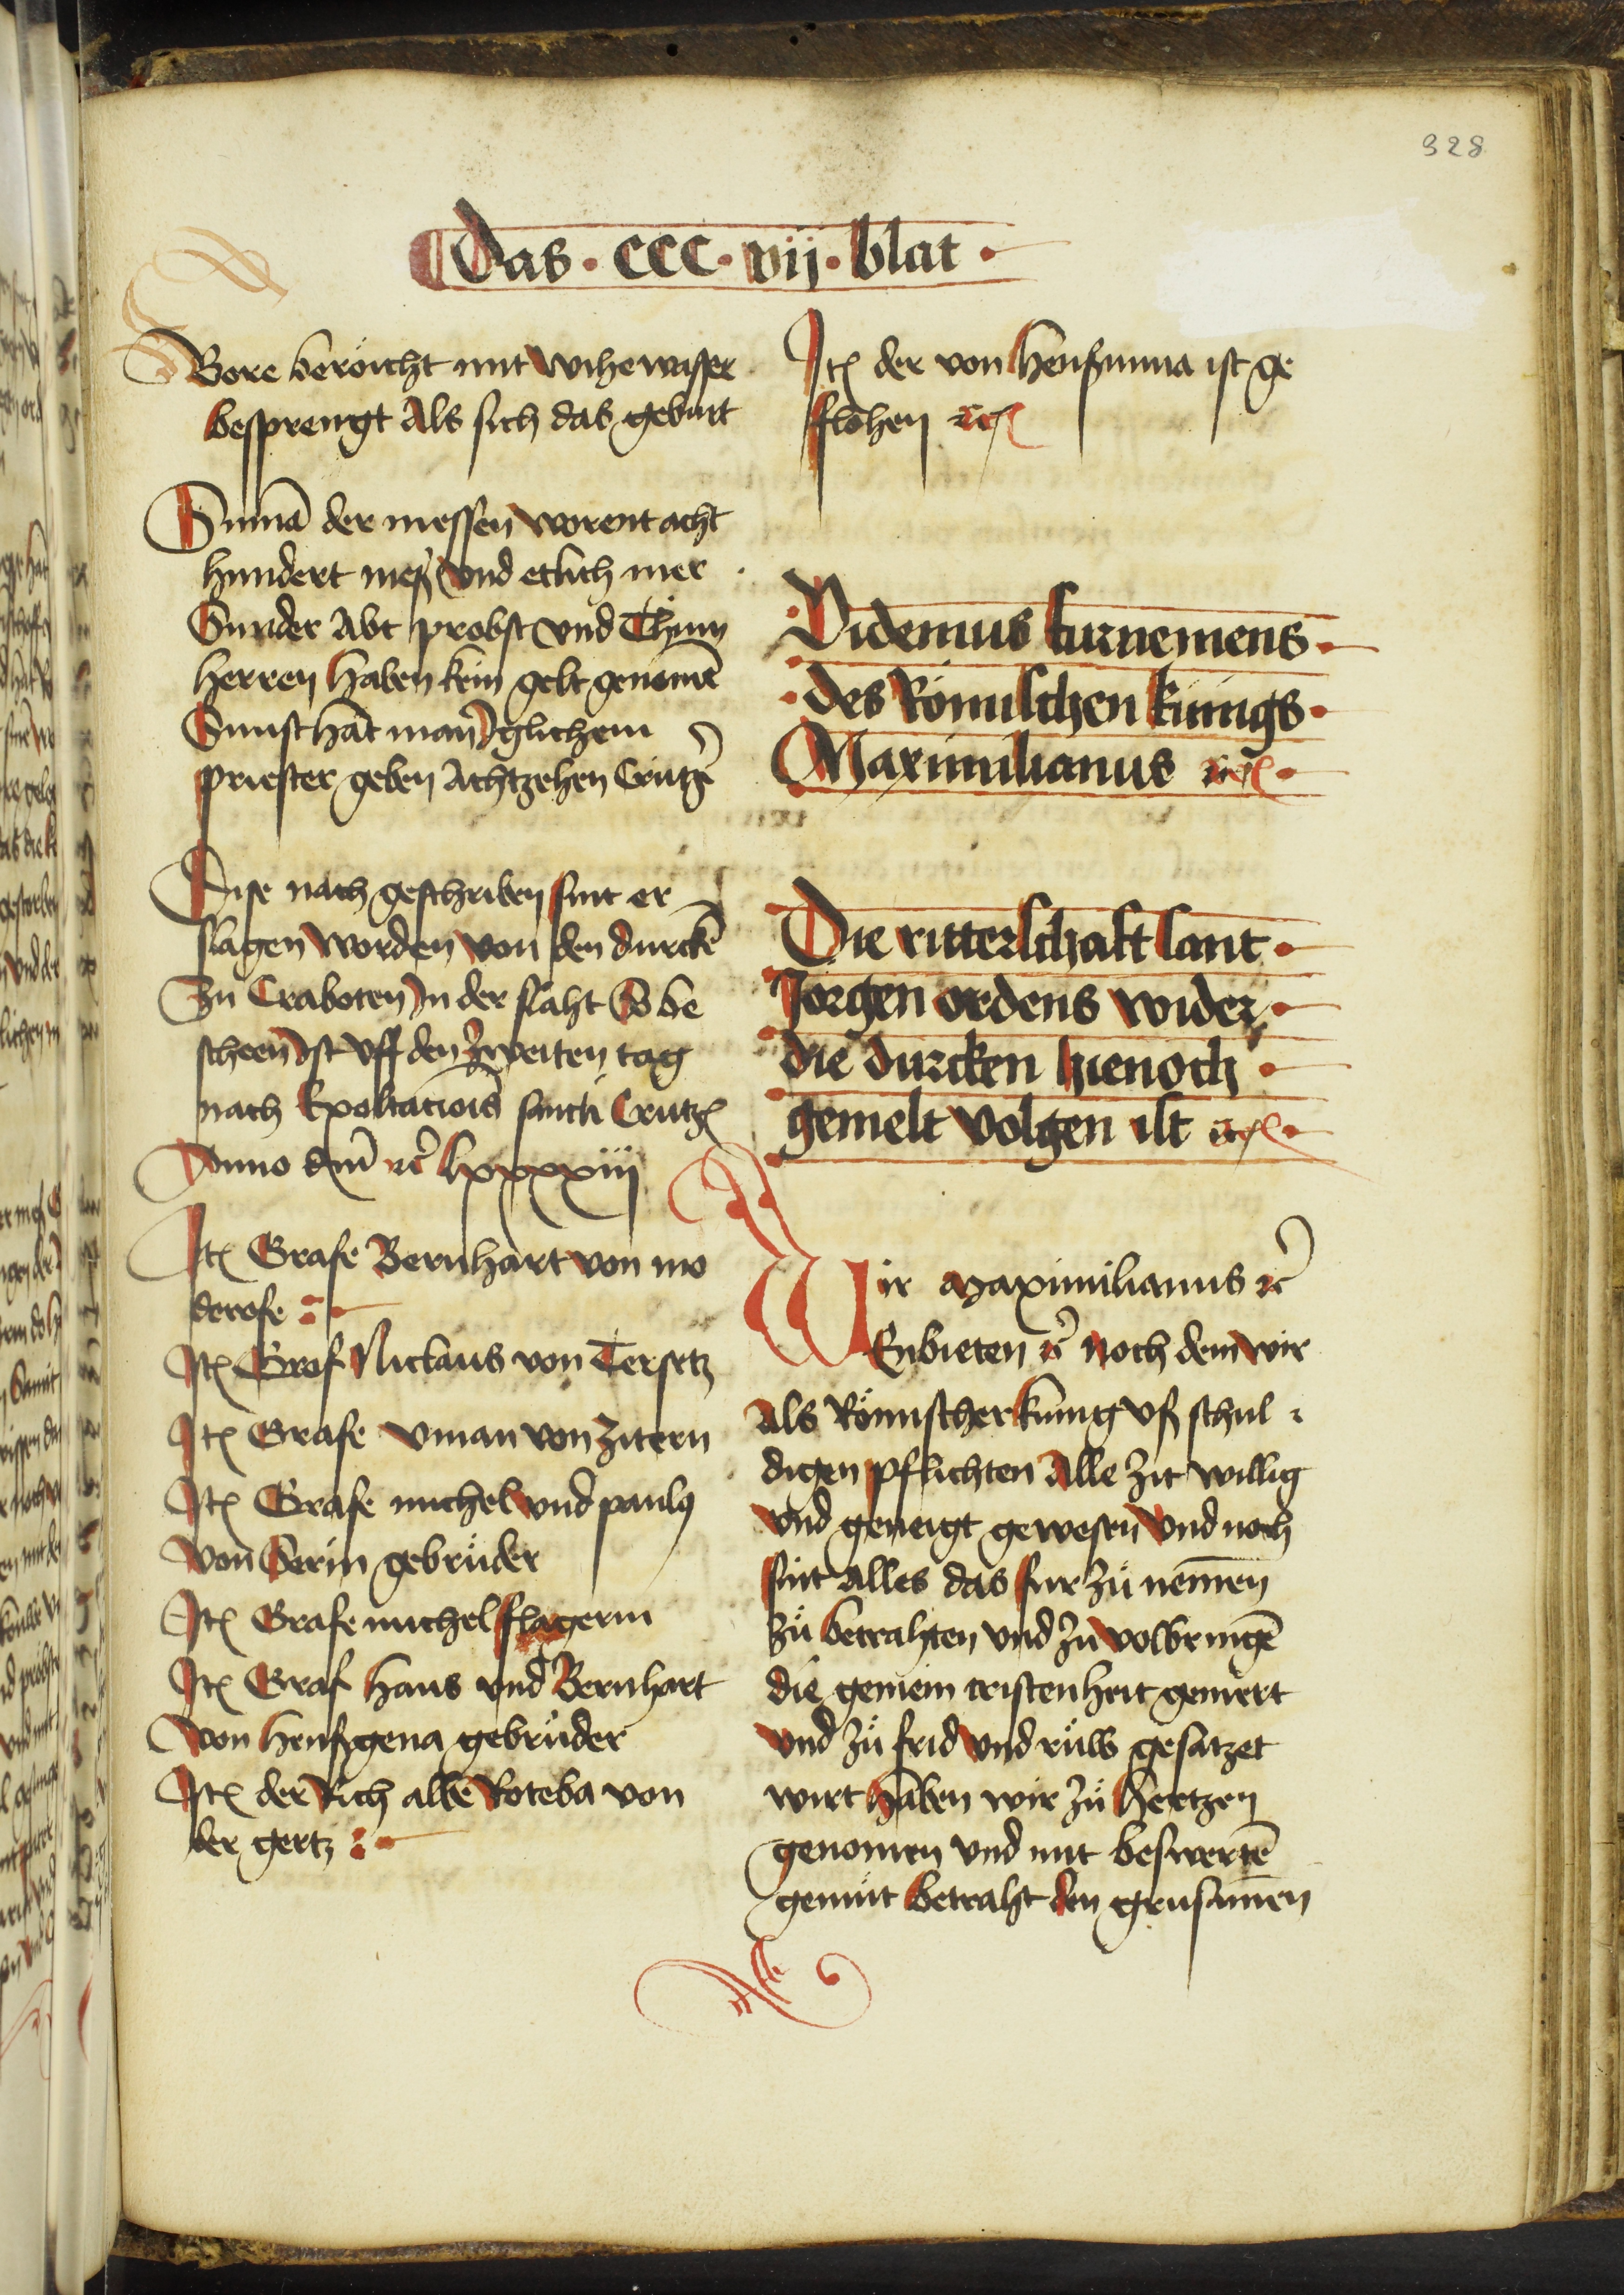 328
Das · CCC · vij · blat ·
Bore beroicht mit wihe wasser
besprengt Als sich das geburt
Sum̄a der messen worent acht
hundert meß vnd etlich mer
Sunder Abt probst vnd Thům
herren haben kein gelt genomē
Sunst hat man yglichem
priester geben Achtzehen Crützer
Dise nach geschriben sint er
slagen worden von den durckē
Zu Craboten in der slaht So be
scheen ist vff den Zweiten tag
nach Exoltacions sancti Crutz
Anno dm̄ ꝛc lxxxxiij
Itē Grafe Bernhart von mo
derose
Itē Graf Niclaus von Tersetz
Itē Grafe vman von Zitern
Itē Grafe michel vnd paulus
von Serin gebrüder
Itē Grafe michel slagerin
Itē Graf hans vnd Bernhart
von henßgena gebrüder
Itē der Rich albe Roteba von
der gertz
Itē der von henßmma ist ge
flohen ꝛc
Videmus furnemens
des Römischen künigs
Maximilianus ꝛc
Die ritterschaft sant
Jorgen ordens wider
die durcken hienoch
gemelt volgen ist ꝛc
Wir Maximilianus ꝛc
Enbieten ꝛc Noch dem wir
Als Römischer kunig vß schul
digen pflichten Alle zit willig
vnd geneigt gewesen vnd noch
sint Alles das fur zů nemen
zů betrahten vnd zu volbringē
die gemein cristenheit gemert
vnd zů frid vnd růw gesatzet
wirt haben wir zů hertzen
genomen vnd mit beswertē
gemüt betraht den grusamen